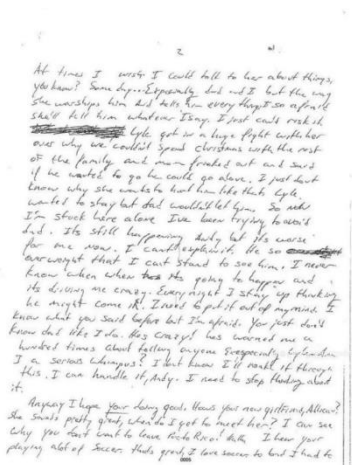 2
At times I wish I could talk to her about things,
you know? Some day... Especially dad and I but the way
she worships him and tells him everything I so afraid
she'll tell him whatever I say. I just can't risk it
Lyle got in a huge fight with her
over why we couldn't spend christmas with the rest
of the family and mom freaked out and said
if he wanted to go he could go alone. I just dont
know why she wants to hurt him like that. Lyle
wanted to stay but dad wouldn't let him. So now
I'm stuck here alone I've been trying to avoid
dad. Its still happening Andy but its worse
for me now. I can't explain it. He so
overweight that I can't stand to see him. I never
know when when its going to happen and
its driving me crazy. Every night I stay up thinking
he might come in. I need to put it out of my mind. I
know what you said before but I'm afraid. You just don't
know dad like I do. Hes crazy! he's warned me a
hundred times about telling anyone Especially Lyle. Am
I a serious whimpus? I dont know I'll make it through
this. I can handle it, Andy. I need to stop thinking about
it.
Anyway I hope your doing good. Hows your new girlfriend, Allison?
She sounds pretty great, when do I get to meet her? I can see
why you don't want to leave Puerto Rico! I hear your
playing alot of soccer. thats great, I love soccer to but I had to